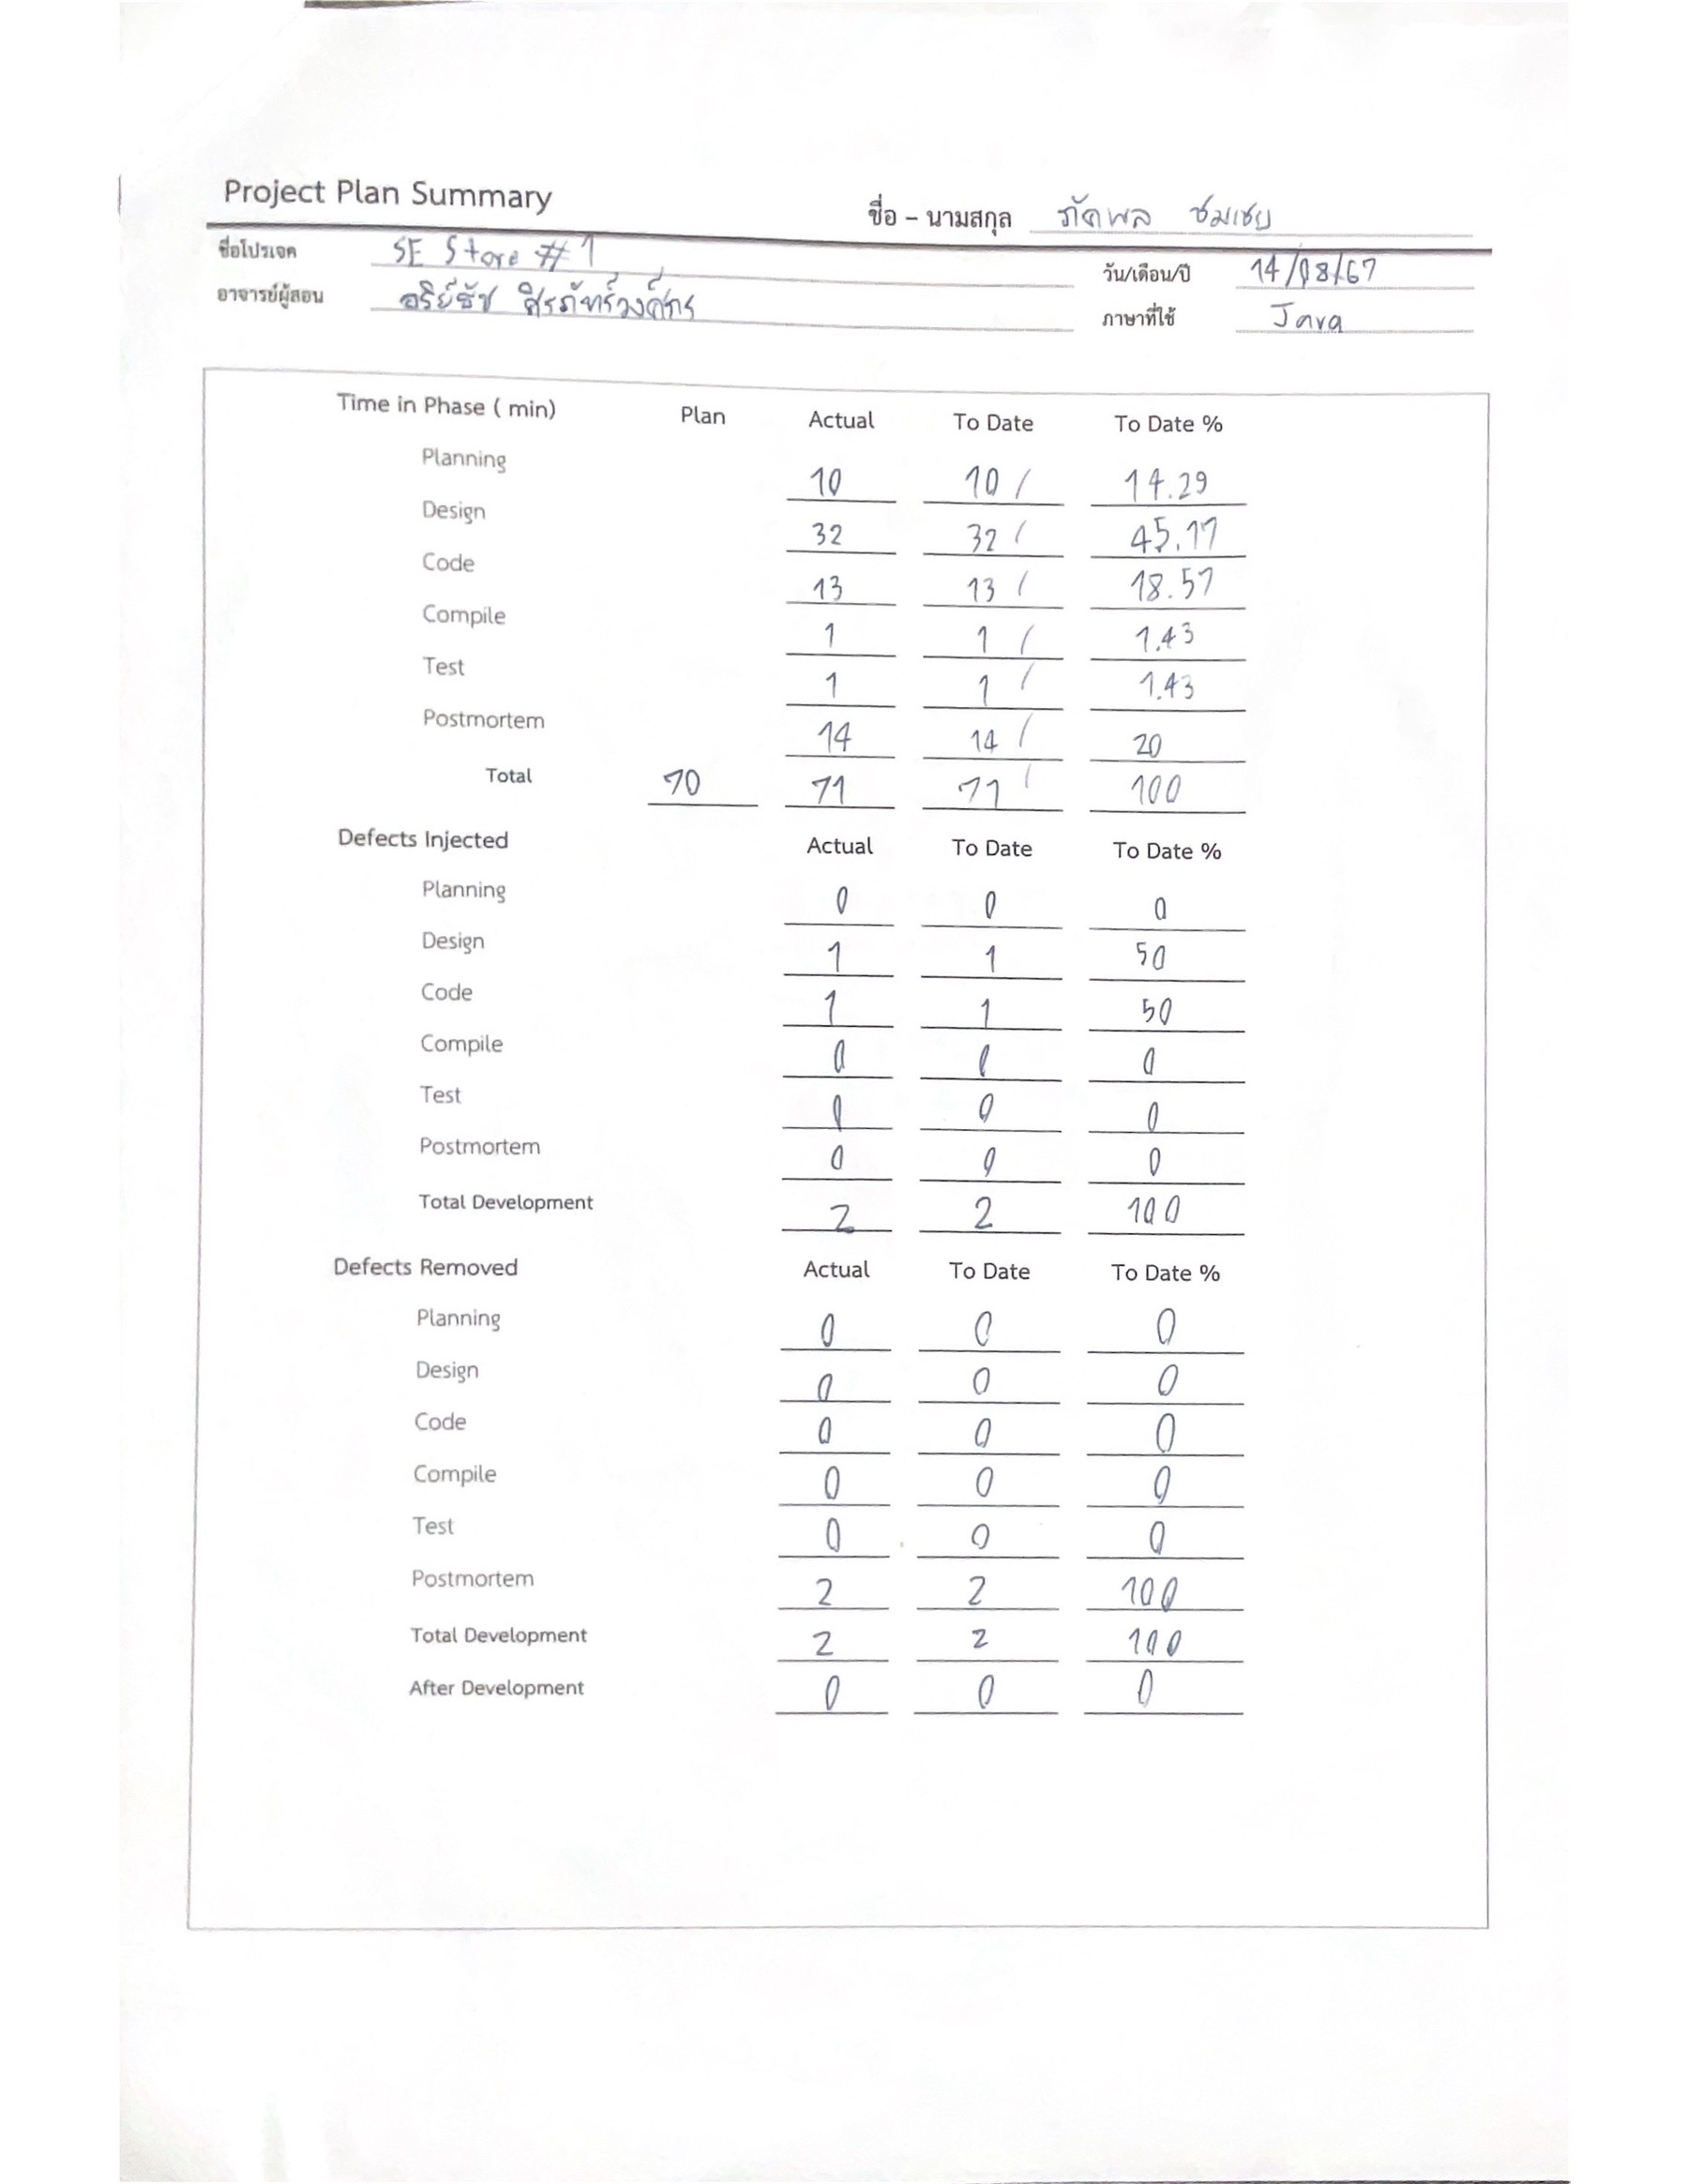 Project Plan Summary
ชื่อ – นามสกุล ภัคพล ชมเชย
ชื่อโปรเจค SE Store #1
วัน/เดือน/ปี 14/08/67
อาจารย์ผู้สอน อริย์ธัช ศิรภัทร์วงศ์กร
ภาษาที่ใช้ Java
Time in Phase ( min) Plan Actual To Date To Date %
Planning 10 10 / 14.29
Design 32 32 / 45.17
Code 13 13 / 18.57
Compile 1 1 / 1.43
Test 1 1 / 1.43
Postmortem 14 14 / 20
Total 70 71 71 / 100
Defects Injected Actual To Date To Date %
Planning 0 0 0
Design 1 1 50
Code 1 1 50
Compile 0 0 0
Test 0 0 0
Postmortem 0 0 0
Total Development 2 2 100
Defects Removed Actual To Date To Date %
Planning 0 0 0
Design 0 0 0
Code 0 0 0
Compile 0 0 0
Test 0 0 0
Postmortem 2 2 100
Total Development 2 2 100
After Development 0 0 0